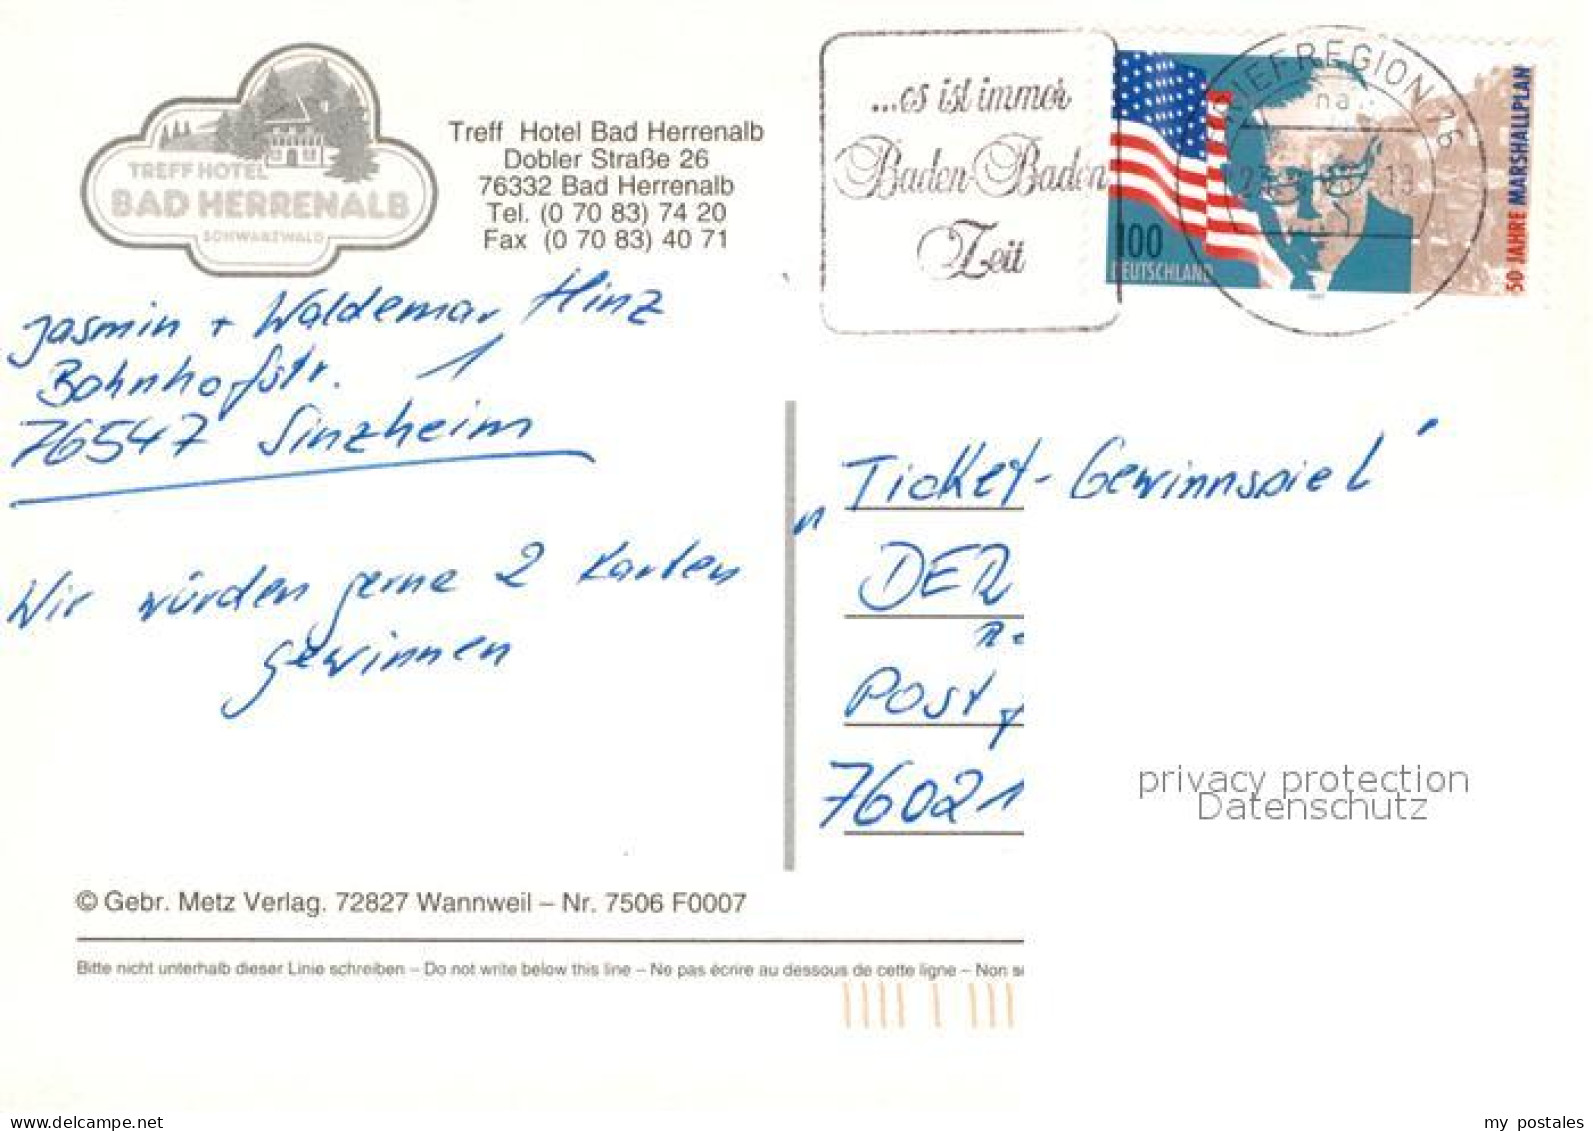 TREFF HOTEL
BAD HERRENALB
SCHWARZWALD
Treff Hotel Bad Herrenalb
Dobler Straße 26
76332 Bad Herrenalb
Tel. (0 70 83) 74 20
Fax (0 70 83) 40 71
...es ist immer
Baden-Baden
Zeit
BRIEFREGION 76
100
DEUTSCHLAND
50 JAHRE MARSHALLPLAN
Jasmin + Waldemar Hinz
Bahnhofstr. 1
76547 Sinzheim
Wir würden gerne 2 Karten
gewinnen
"Ticket-Gewinnspiel"
DER
Post
76021
privacy protection
Datenschutz
© Gebr. Metz Verlag. 72827 Wannweil – Nr. 7506 F0007
Bitte nicht unterhalb dieser Linie schreiben – Do not write below this line – Ne pas écrire au dessous de cette ligne – Non
delcampe.net
my_postales